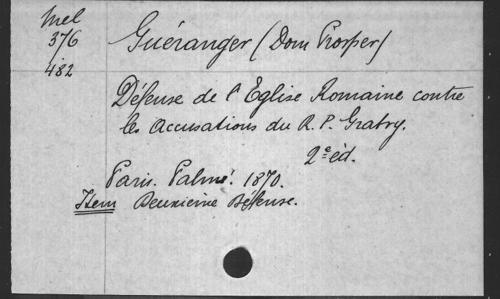 Mel
376
482
Guéranger (Dom Prosper)
Défense de l'Eglise Romaine contre
les Accusations du R. P. Gratry.
2e éd.
Paris. Palmé. 1870.
Item Deuxième Défense.